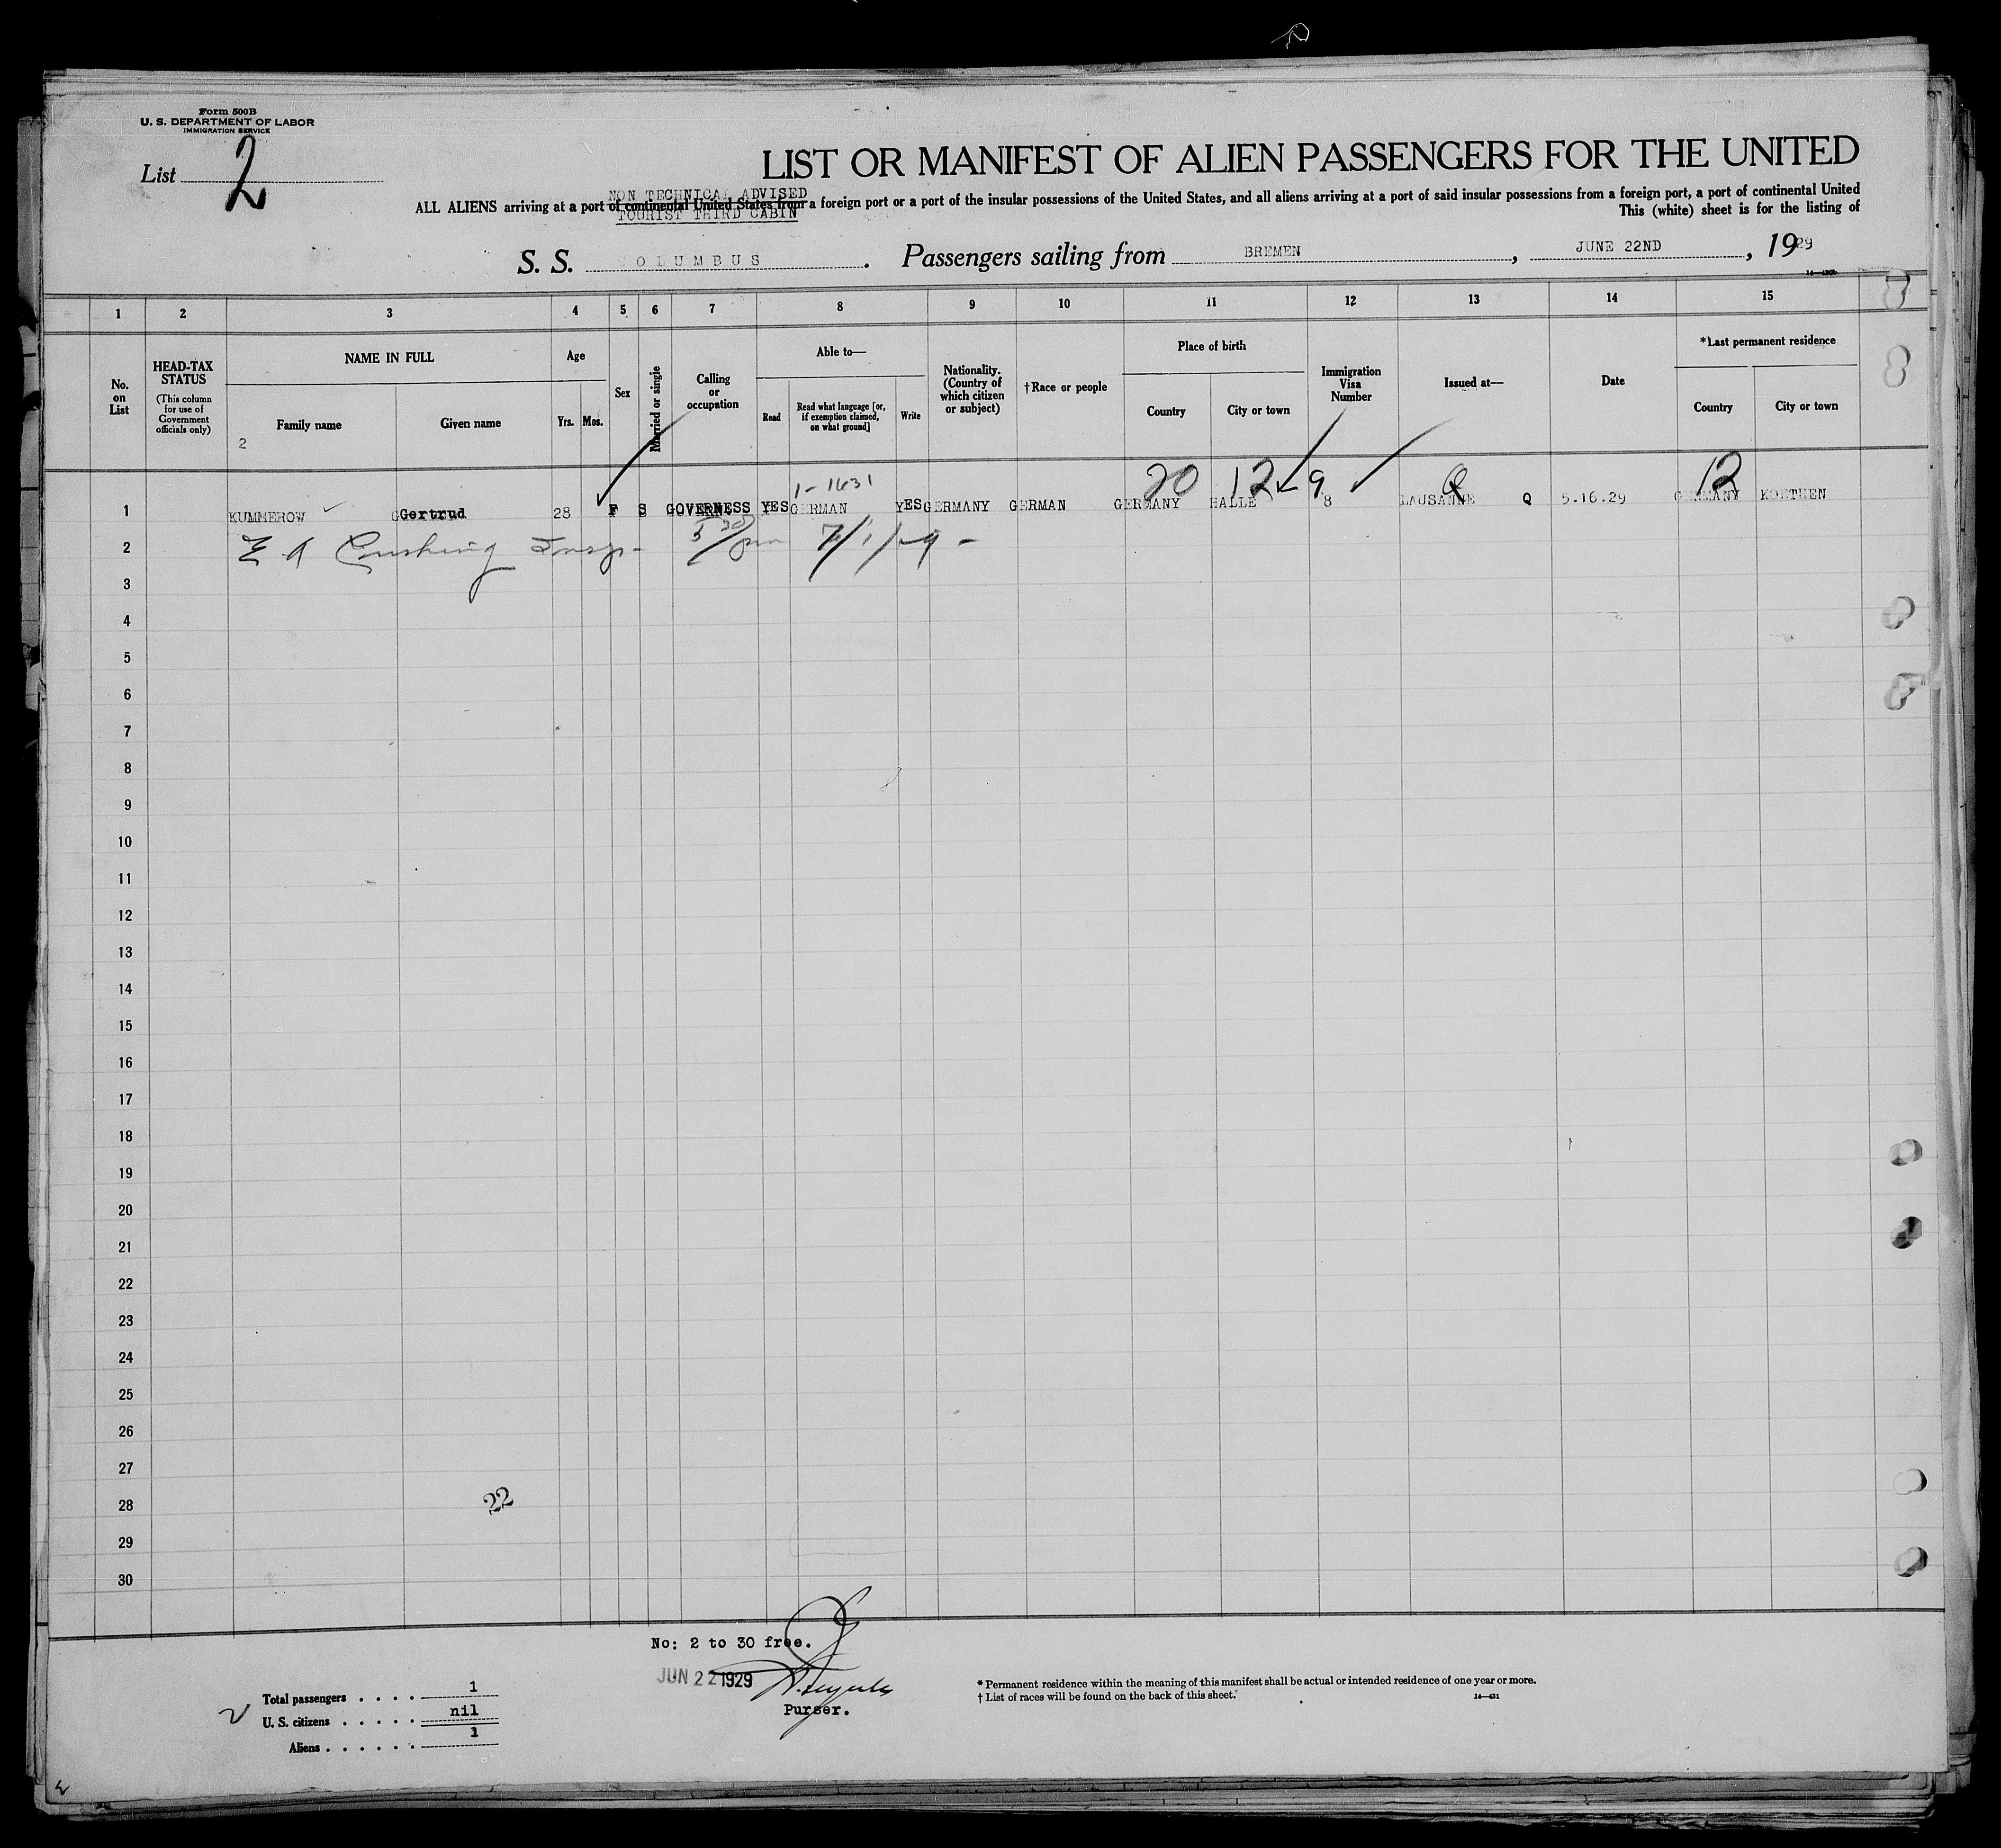 Form 500B
U. S. DEPARTMENT OF LABOR
IMMIGRATION SERVICE
List 2
LIST OR MANIFEST OF ALIEN PASSENGERS FOR THE UNITED
NON TECHNICAL ADVISED
ALL ALIENS arriving at a port of continental United States from a foreign port or a port of the insular possessions of the United States, and all aliens arriving at a port of said insular possessions from a foreign port, a port of continental United
TOURIST THIRD CABIN
This (white) sheet is for the listing of
S. S. COLUMBUS. Passengers sailing from BREMEN, JUNE 22ND, 1929
1 2 3 4 5 6 7 8 9 10 11 12 13 14 15
No. on List
HEAD-TAX STATUS
(This column for use of Government officials only)
NAME IN FULL
Family name
Given name
2
Age
Yrs. Mos.
Sex
Married or single
Calling or occupation
Able to—
Read
Read what language [or, if exemption claimed, on what ground]
Write
Nationality. (Country of which citizen or subject)
†Race or people
Place of birth
Country
City or town
Immigration Visa Number
Issued at—
Date
*Last permanent residence
Country
City or town
1-1631 20 12 9 Q 12
1 KUMMEROW Gertrud 28 F S GOVERNESS YES GERMAN YES GERMANY GERMAN GERMANY HALLE 8 LAUSANNE Q 5.16.29 GERMANY KOETHEN
2 E A Cushing Insp- 5 30/pm 7/1/29 -
3
4
5
6
7
8
9
10
11
12
13
14
15
16
17
18
19
20
21
22
23
24
25
26
27
28 22
29
30
No: 2 to 30 free.
JUN 22 1929
Purser.
Total passengers . . . . 1
U. S. citizens . . . . . nil
Aliens . . . . . . 1
* Permanent residence within the meaning of this manifest shall be actual or intended residence of one year or more.
† List of races will be found on the back of this sheet.
14—431